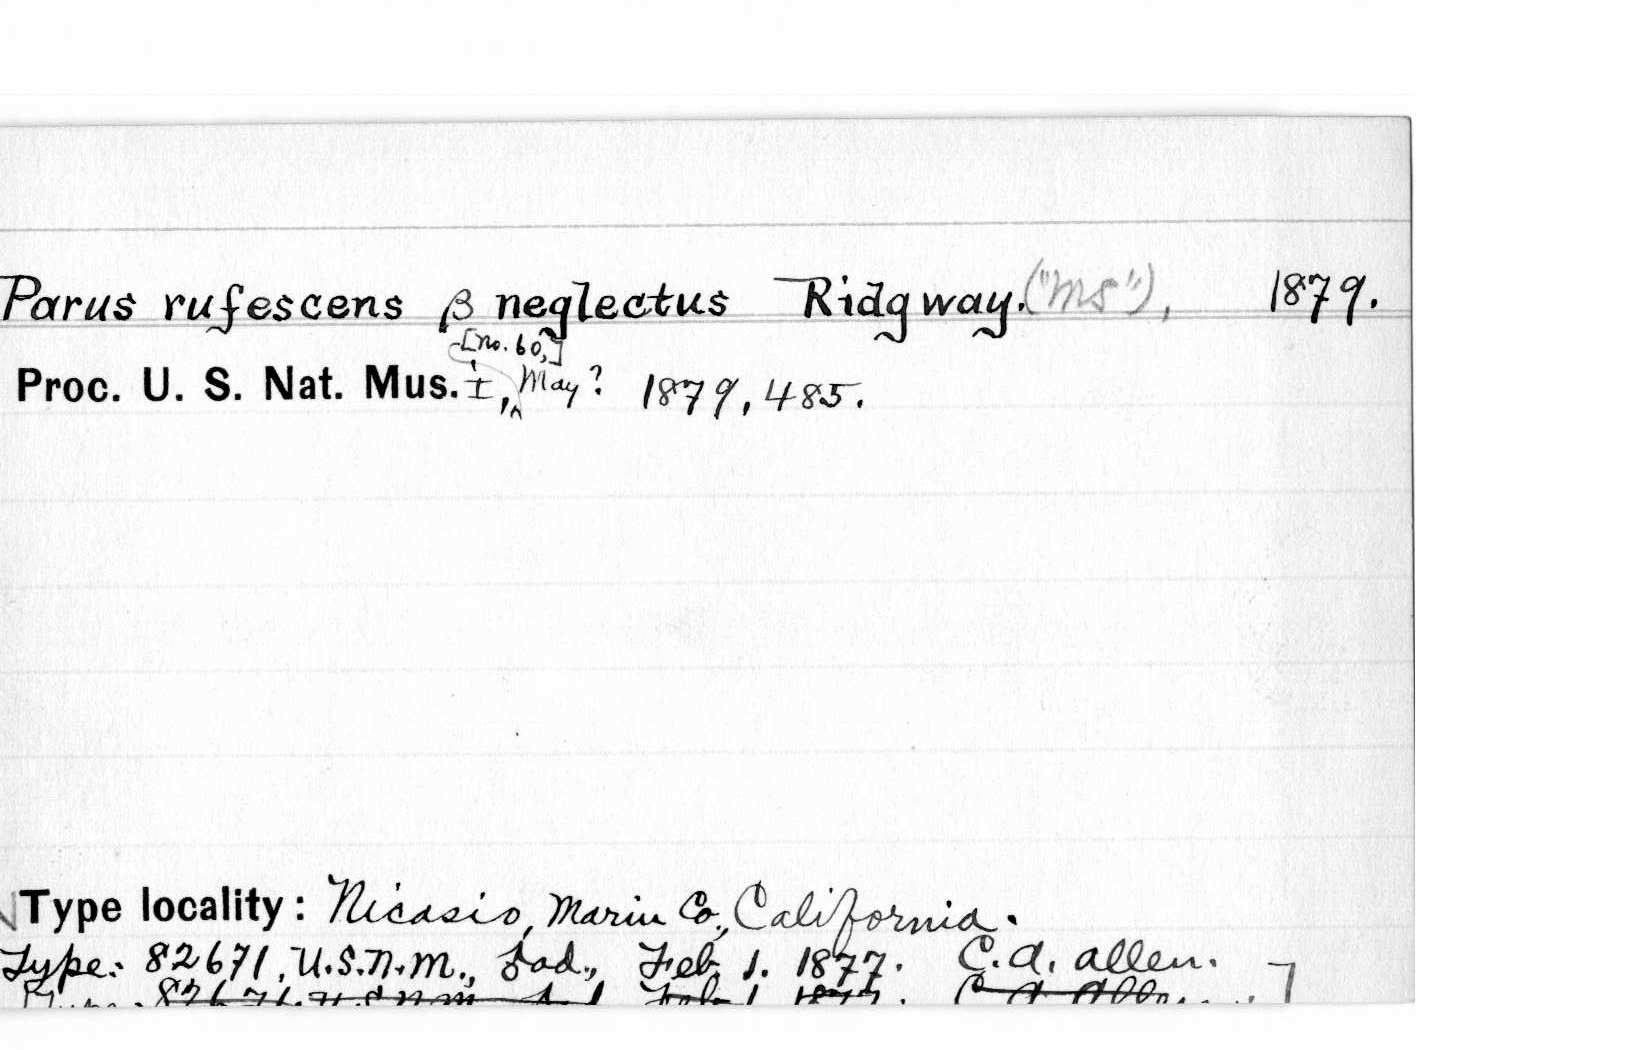 Parus rufescens β neglectus Ridgway. ("MS"), 1879.
[no. 60,]
Proc. U. S. Nat. Mus. I, May? 1879, 485.
Type locality: Nicasio, Marin Co., California.
Type: 82671, U.S.N.M., ♀ad., Feb. 1. 1877. C.A. Allen.